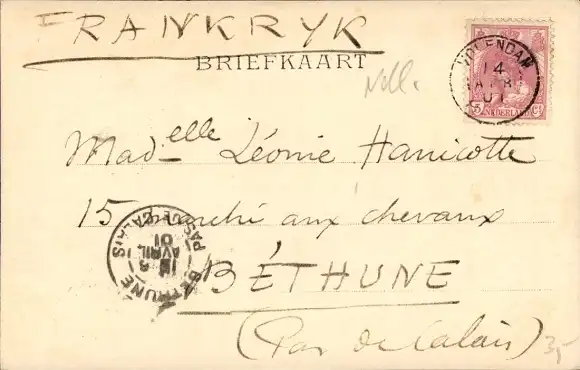 FRANKRYK
BRIEFKAART
VOLENDAM
14
APR
01
5 NEDERLAND Ct
Madelle Léonie Hanicotte
15 marché aux chevaux
BÉTHUNE
(Pas de Calais)
BETHUNE
PAS DE CALAIS
AVRIL
01
3,-